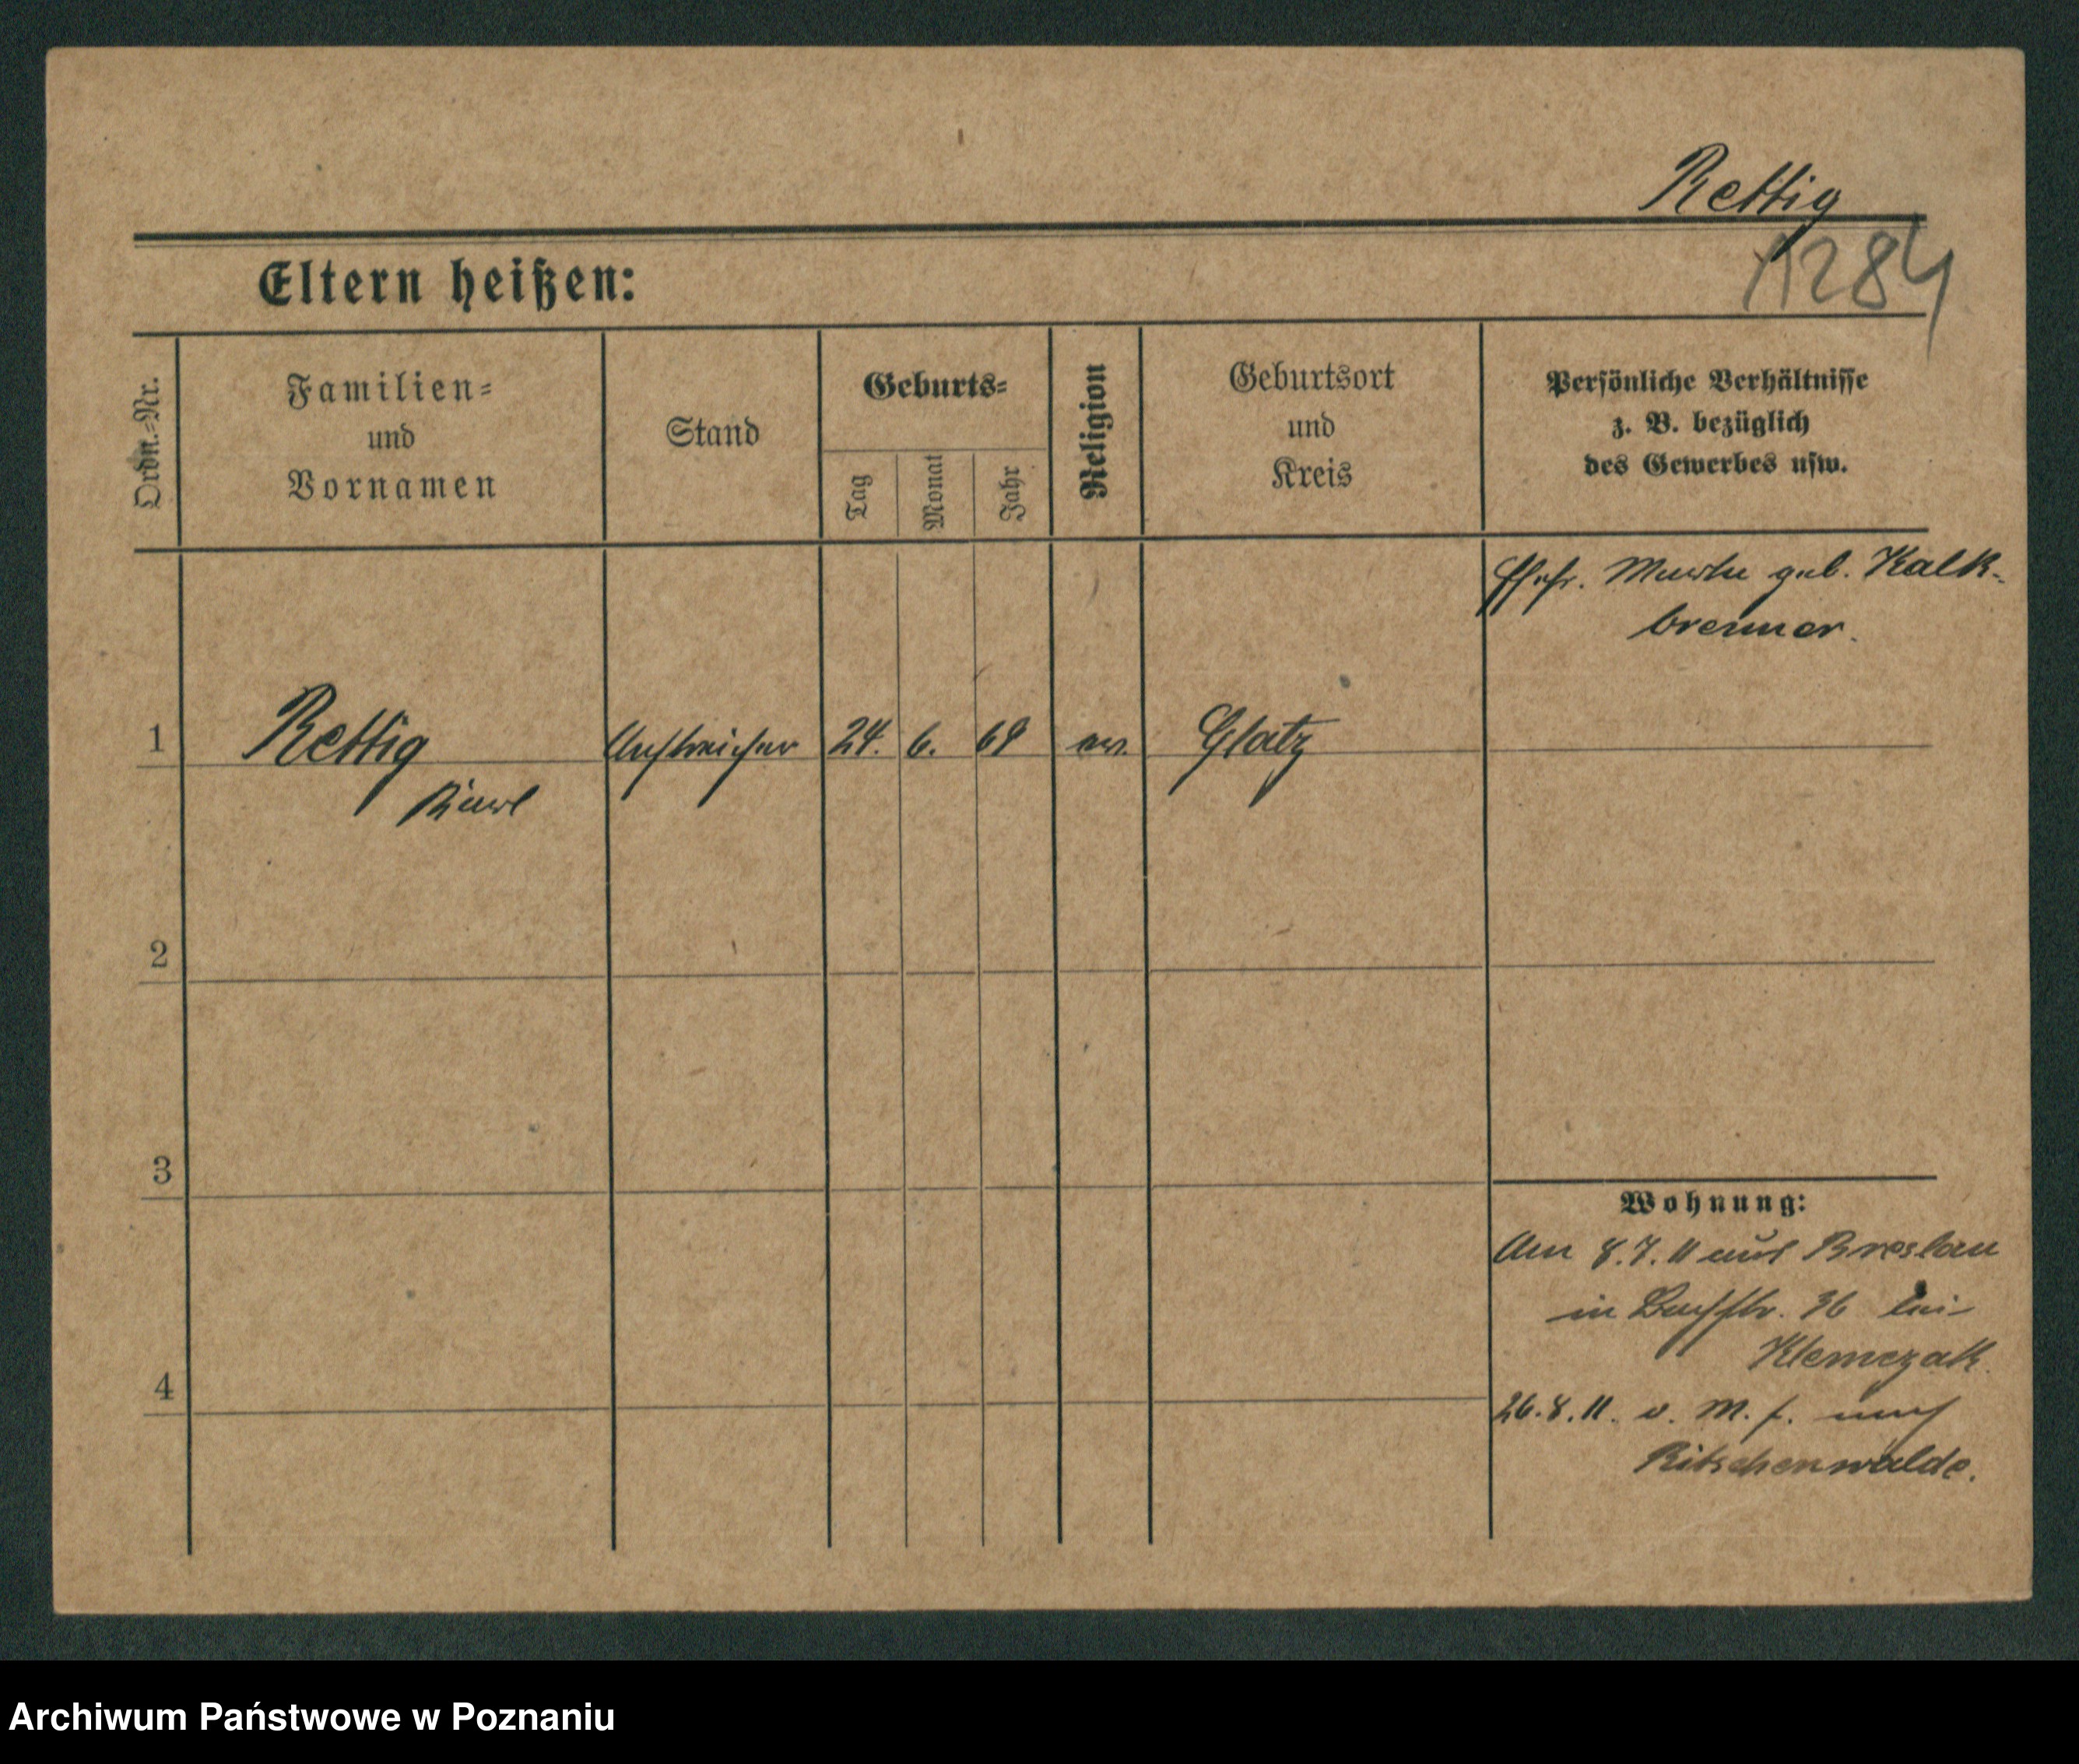 Rettig
1284
Eltern heißen:
Ordn.-Nr.
Familien-
und
Vornamen
Stand
Geburts-
Tag
Monat
Jahr
Religion
Geburtsort
und
Kreis
Persönliche Verhältnisse
z. B. bezüglich
des Gewerbes usw.
Ehefr. Martha geb. Kalk-
brenner.
1 Rettig Anstreicher 24. 6. 69 ev. Glatz
Paul
2
3
Wohnung:
Am 8.7.11 aus Breslau
in Bachstr. 36 bei
Klemczak.
4
26.8.11. v. M. f. nach
Ritschenwalde.
Archiwum Państwowe w Poznaniu